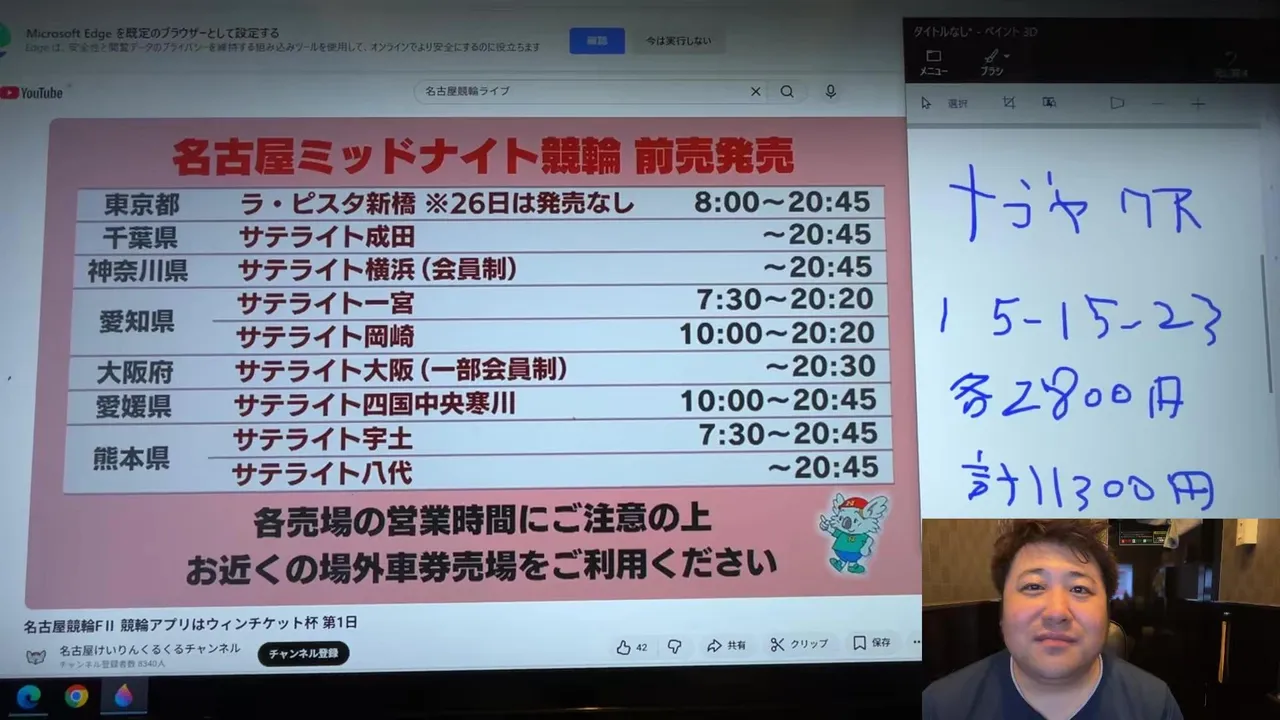 Microsoft Edge を既定のブラウザーとして設定する
Edge は、安全性と閲覧データのプライバシーを維持する組み込みツールを使用して、オンラインでより安全にするのに役立ちます
今は実行しない
YouTube
名古屋競輪ライブ
名古屋ミッドナイト競輪 前売発売
東京都 ラ・ピスタ新橋 ※26日は発売なし 8:00～20:45
千葉県 サテライト成田 ～20:45
神奈川県 サテライト横浜(会員制) ～20:45
愛知県 サテライト一宮 7:30～20:20
サテライト岡崎 10:00～20:20
大阪府 サテライト大阪(一部会員制) ～20:30
愛媛県 サテライト四国中央寒川 10:00～20:45
熊本県 サテライト宇土 7:30～20:45
サテライト八代 ～20:45
各売場の営業時間にご注意の上
お近くの場外車券売場をご利用ください
名古屋競輪FⅡ 競輪アプリはウィンチケット杯 第1日
名古屋けいりんくるくるチャンネル
チャンネル登録者数 8340人
チャンネル登録
42
共有
クリップ
保存
タイトルなし* - ペイント 3D
メニュー
ブラシ
選択
ナゴヤ 7R
15-15-23
各2800円
計11300円